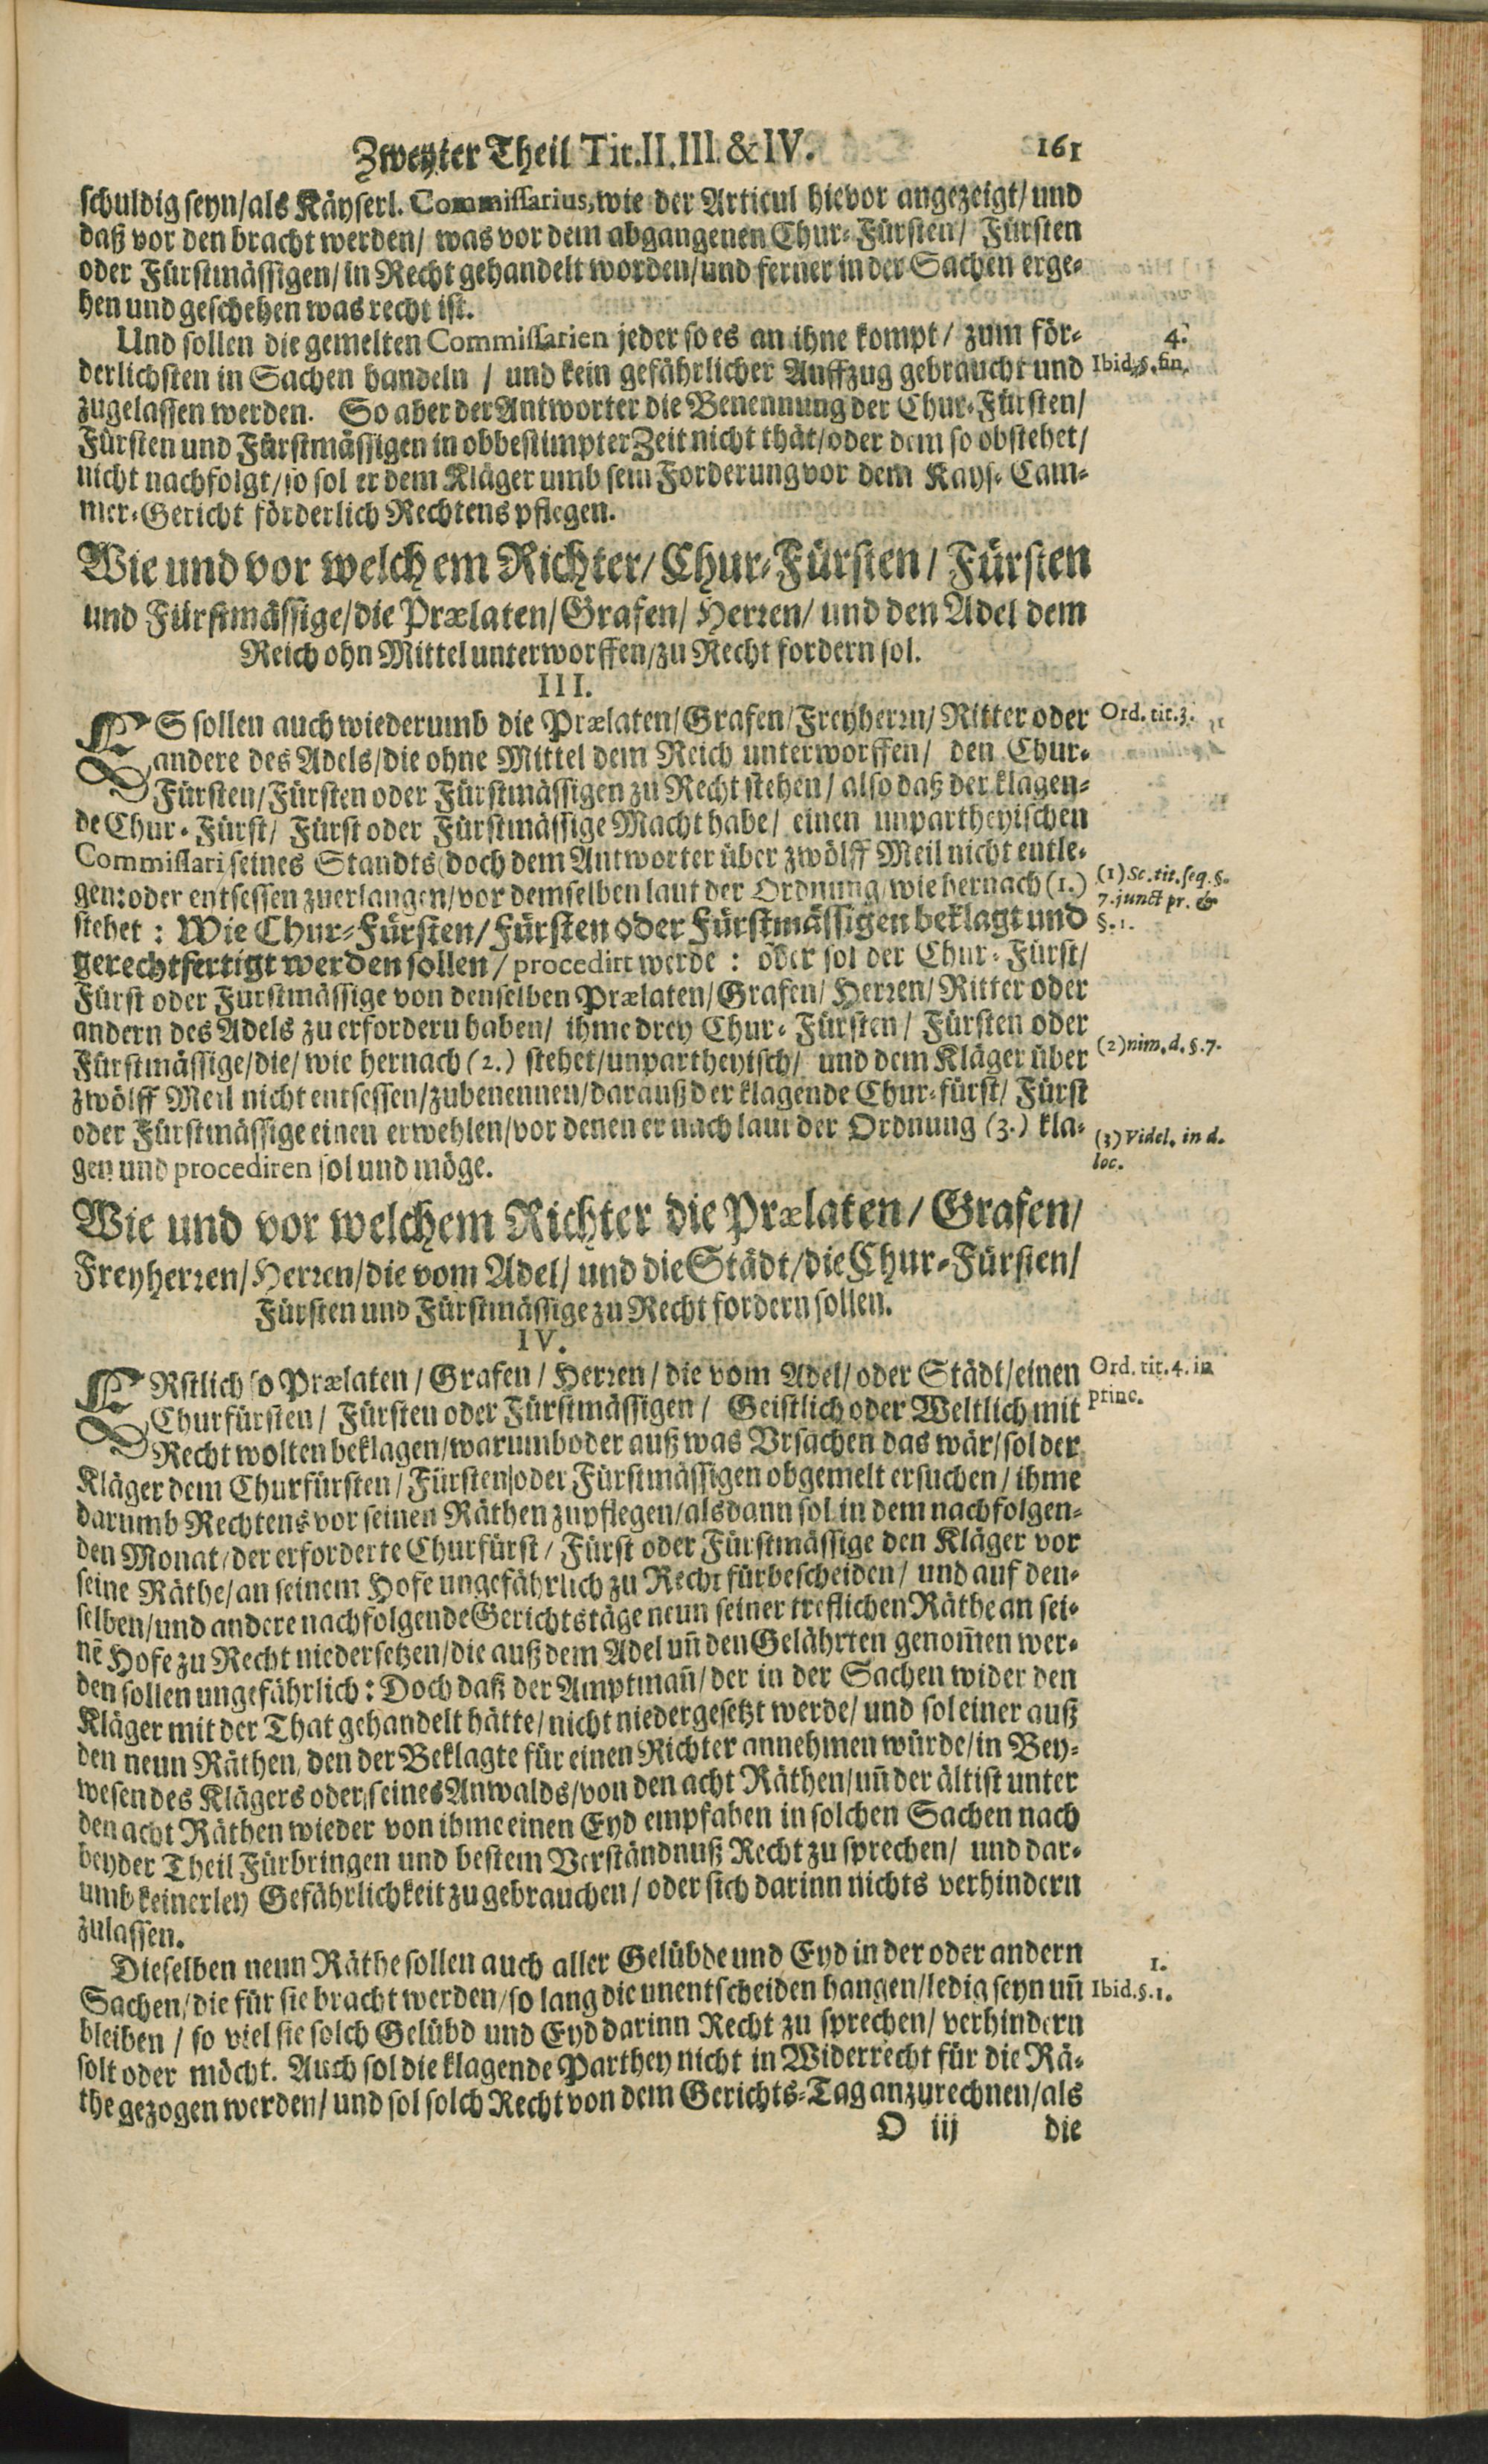 Zweyter Theil Tit. II. III. & IV. 161
schuldig seyn/als Käyserl. Commissarius, wie der Articul hievor angezeigt/ und
daß vor den bracht werden/ was vor dem abgangenen Chur-Fürsten/ Fürsten
oder Fürstmässigen/ in Recht gehandelt worden/und ferner in der Sachen erge-
hen und geschehen was recht ist.
Und sollen die gemelten Commissarien jeder so es an ihne kompt/ zum för-
4.
derlichsten in Sachen handeln / und kein gefährlicher Auffzug gebraucht und
Ibid. §. fin.
zugelassen werden. So aber der Antworter die Benennung der Chur-Fürsten/
Fürsten und Fürstmässigen in obbestimpter Zeit nicht thät/oder dem so obstehet/
nicht nachfolgt/so sol er dem Kläger umb sein Forderung vor dem Kays. Cam-
mer-Gericht förderlich Rechtens pflegen.
Wie und vor welchem Richter/ Chur-Fürsten/ Fürsten
und Fürstmässige/die Prælaten/Grafen/ Herren/ und den Adel dem
Reich ohn Mittel unterworffen/zu Recht fordern sol.
III.
ES sollen auch wiederumb die Prælaten/Grafen/Freyherrn/ Ritter oder
Ord. tit. 3.
andere des Adels/die ohne Mittel dem Reich unterworffen/ den Chur-
Fürsten/Fürsten oder Fürstmässigen zu Recht stehen/ also daß der klagen-
de Chur-Fürst/ Fürst oder Fürstmässige Macht habe/ einen unpartheyischen
Commissari seines Standts (doch dem Antworter über zwölff Meil nicht entle-
gen: oder entsessen zuerlangen/vor demselben laut der Ordnung/wie hernach (1.)
(1) Sc. tit. seq. §.
7. junct pr. &
stehet: Wie Chur-Fürsten/Fürsten oder Fürstmässigen beklagt und
§. 1.
gerechtfertigt werden sollen/ procedirt werde: oder sol der Chur-Fürst/
Fürst oder Furstmässige von denselben Prælaten/Grafen/ Herren/ Ritter oder
andern des Adels zu erfordern haben/ ihme drey Chur-Fürsten/ Fürsten oder
Fürstmässige/die/ wie hernach (2.) stehet/unpartheyisch/ und dem Kläger über
(2) nim. d. §. 7.
zwölff Meil nicht entsessen/zubenennen/darauß der klagende Chur-fürst/ Fürst
oder Fürstmässige einen erwehlen/vor denen er nach laut der Ordnung (3.) kla-
(3) Videl. in d.
loc.
gen und procediren sol und möge.
Wie und vor welchem Richter die Prælaten/ Grafen/
Freyherren/Herren/die vom Adel/ und die Städt/die Chur-Fürsten/
Fürsten und Fürstmässige zu Recht fordern sollen.
IV.
ERstlich so Prælaten/ Grafen/ Herren/ die vom Adel/ oder Städt/einen
Ord. tit. 4. in
princ.
Churfürsten/ Fürsten oder Fürstmässigen/ Geistlich oder Weltlich mit
Recht wolten beklagen/warumb oder auß was Vrsachen das wär/sol der
Kläger dem Churfürsten/ Fürsten/oder Fürstmässigen obgemelt ersuchen/ ihme
darumb Rechtens vor seinen Räthen zupflegen/alsdann sol in dem nachfolgen-
den Monat/der erforderte Churfürst/ Fürst oder Fürstmässige den Kläger vor
seine Räthe/an seinem Hofe ungefährlich zu Recht fürbescheiden/ und auf den-
selben/und andere nachfolgende Gerichtstäge neun seiner treflichen Räthe an sei-
nē Hofe zu Recht niedersetzen/die auß dem Adel uñ den Gelährten genom̄en wer-
den sollen ungefährlich: Doch daß der Amptmañ/der in der Sachen wider den
Kläger mit der That gehandelt hätte/nicht niedergesetzt werde/ und sol einer auß
den neun Räthen, den der Beklagte für einen Richter annehmen würde/in Bey-
wesen des Klägers oder/seines Anwalds/von den acht Räthen/uñ der ältist unter
den acht Räthen wieder von ihme einen Eyd empfahen in solchen Sachen nach
beyder Theil Fürbringen und bestem Verständnuß Recht zu sprechen/ und dar-
umb keinerley Gefährlichkeit zu gebrauchen/ oder sich darinn nichts verhindern
zulassen.
Dieselben neun Räthe sollen auch aller Gelübde und Eyd in der oder andern
1.
Sachen/die für sie bracht werden/so lang die unentscheiden hangen/ledig seyn uñ
Ibid. §. 1.
bleiben/ so viel sie solch Gelübd und Eyd darinn Recht zu sprechen/ verhindern
solt oder möcht. Auch sol die klagende Parthey nicht in Widerrecht für die Rä-
the gezogen werden/ und sol solch Recht von dem Gerichts-Tag anzurechnen/als
O iij die